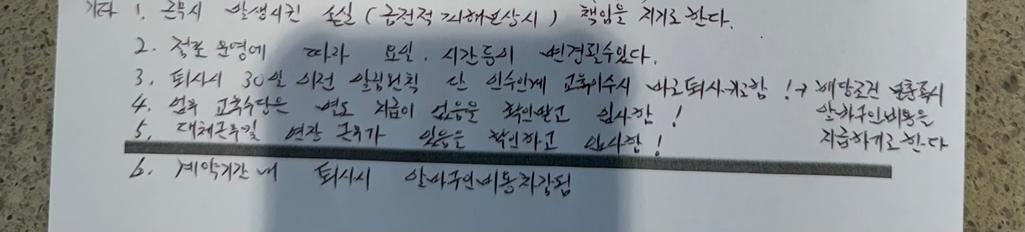 기타 1. 근무시 발생시킨 손실 (금전적 피해보상시) 책임을 지기로 한다.
2. 점포 운영에 따라 요일. 시간등이 변경될수있다.
3. 퇴사시 30일 이전 알림원칙 단 인수인계 교육이수시 바로퇴사가능함 !→ 해당조건 불충족시
알바구인비용을
지급하기로한다
4. 업무 교육수당은 별도 지급이 없음을 확인받고 입사함!
5. 대체근무일 연장 근무가 있음을 확인하고 입사함!
6. 계약기간 내 퇴사시 알바구인비용차감됨